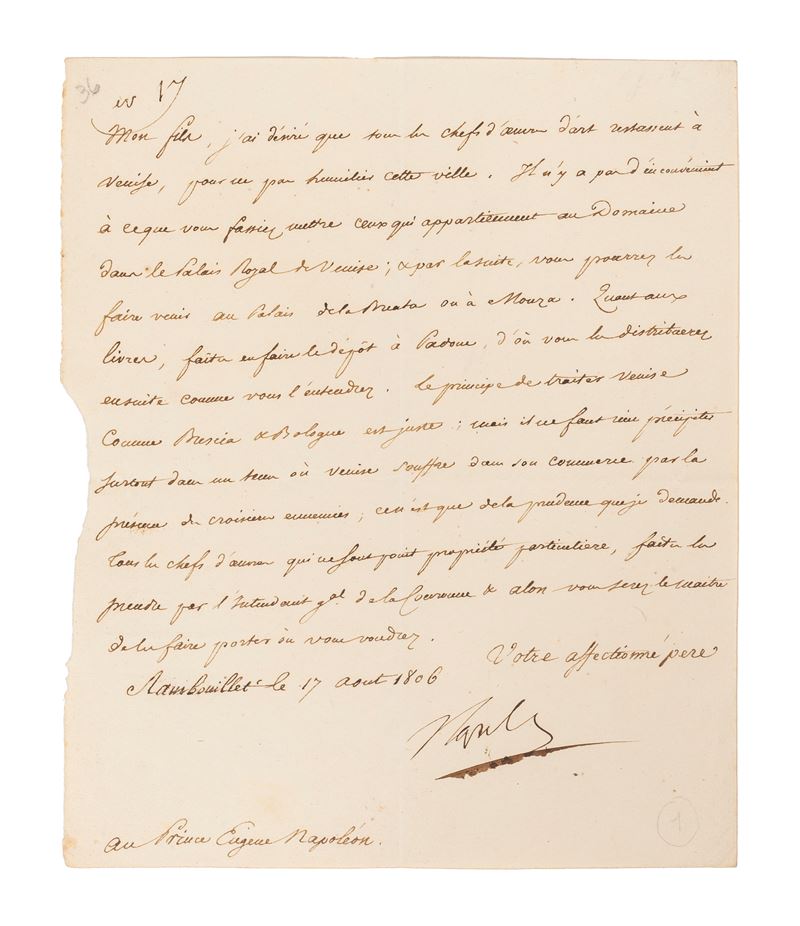 36
17
Mon fils, j'ai désiré que tous les chefs d'œuvre d'art restassent à
Venise, pour ne pas humilier cette ville. Il n'y a pas d'inconvénient
à ce que vous fassiez mettre ceux qui appartiennent au Domaine
dans le Palais Royal de Venise; & par la suite, vous pourrez les
faire venir au Palais de la Brenta ou à Monza. Quant aux
livres, faites en faire le dépôt à Padoue, d'où vous les distribuerez
ensuite comme vous l'entendrez. Le principe de traiter Venise
Comme Brescia & Bologne est juste; mais il ne faut rien précipiter
surtout dans un tems où Venise souffre dans son commerce par la
présence des croisieres ennemies; ce n'est que de la prudence que je demande.
Tous les chefs d'œuvres qui ne sont point propriété particuliere, faites les
prendre par l'Intendant gal. de la Couronne & alors vous serez le maitre
de les faire porter où vous voudrez.
Votre affectionné pere
Rambouillet le 17 aout 1806
Napol
au Prince Eugene Napoléon.
1